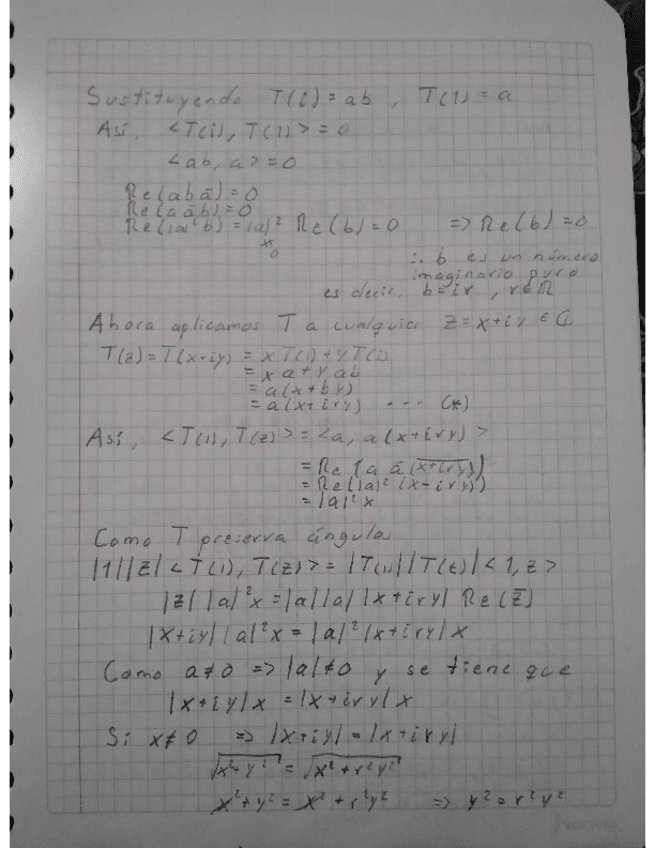 Sustituyendo T(i) = ab , T(1) = a
Así, <T(i), T(1)> = 0
<ab, a> = 0
Re(abā) = 0
Re(aāb) = 0
Re(|a|²b) = |a|² Re(b) = 0 => Re(b) = 0
∴ b es un número
imaginario puro
es decir, b = ir , r∈ℝ
Ahora aplicamos T a cualquier z = x+iy ∈ ℂ
T(z) = T(x+iy) = x T(1) + y T(i)
= x a + y ab
= a(x+by)
= a(x+iry) --- (*)
Así, <T(1), T(z)> = <a, a(x+iry)>
= Re(a ā (\overline{x+iry}))
= Re(|a|² (x-iry))
= |a|² x
Como T preserva ángulos
|1||z| <T(1), T(z)> = |T(1)||T(z)| <1, z>
|z| |a|² x = |a||a| |x+iry| Re(z̄)
|x+iy| |a|² x = |a|² |x+iry| x
Como a≠0 => |a|≠0 y se tiene que
|x+iy| x = |x+iry| x
Si x≠0 => |x+iy| = |x+iry|
√(x²+y²) = √(x²+r²y²)
x²+y² = x²+r²y² => y² = r²y²